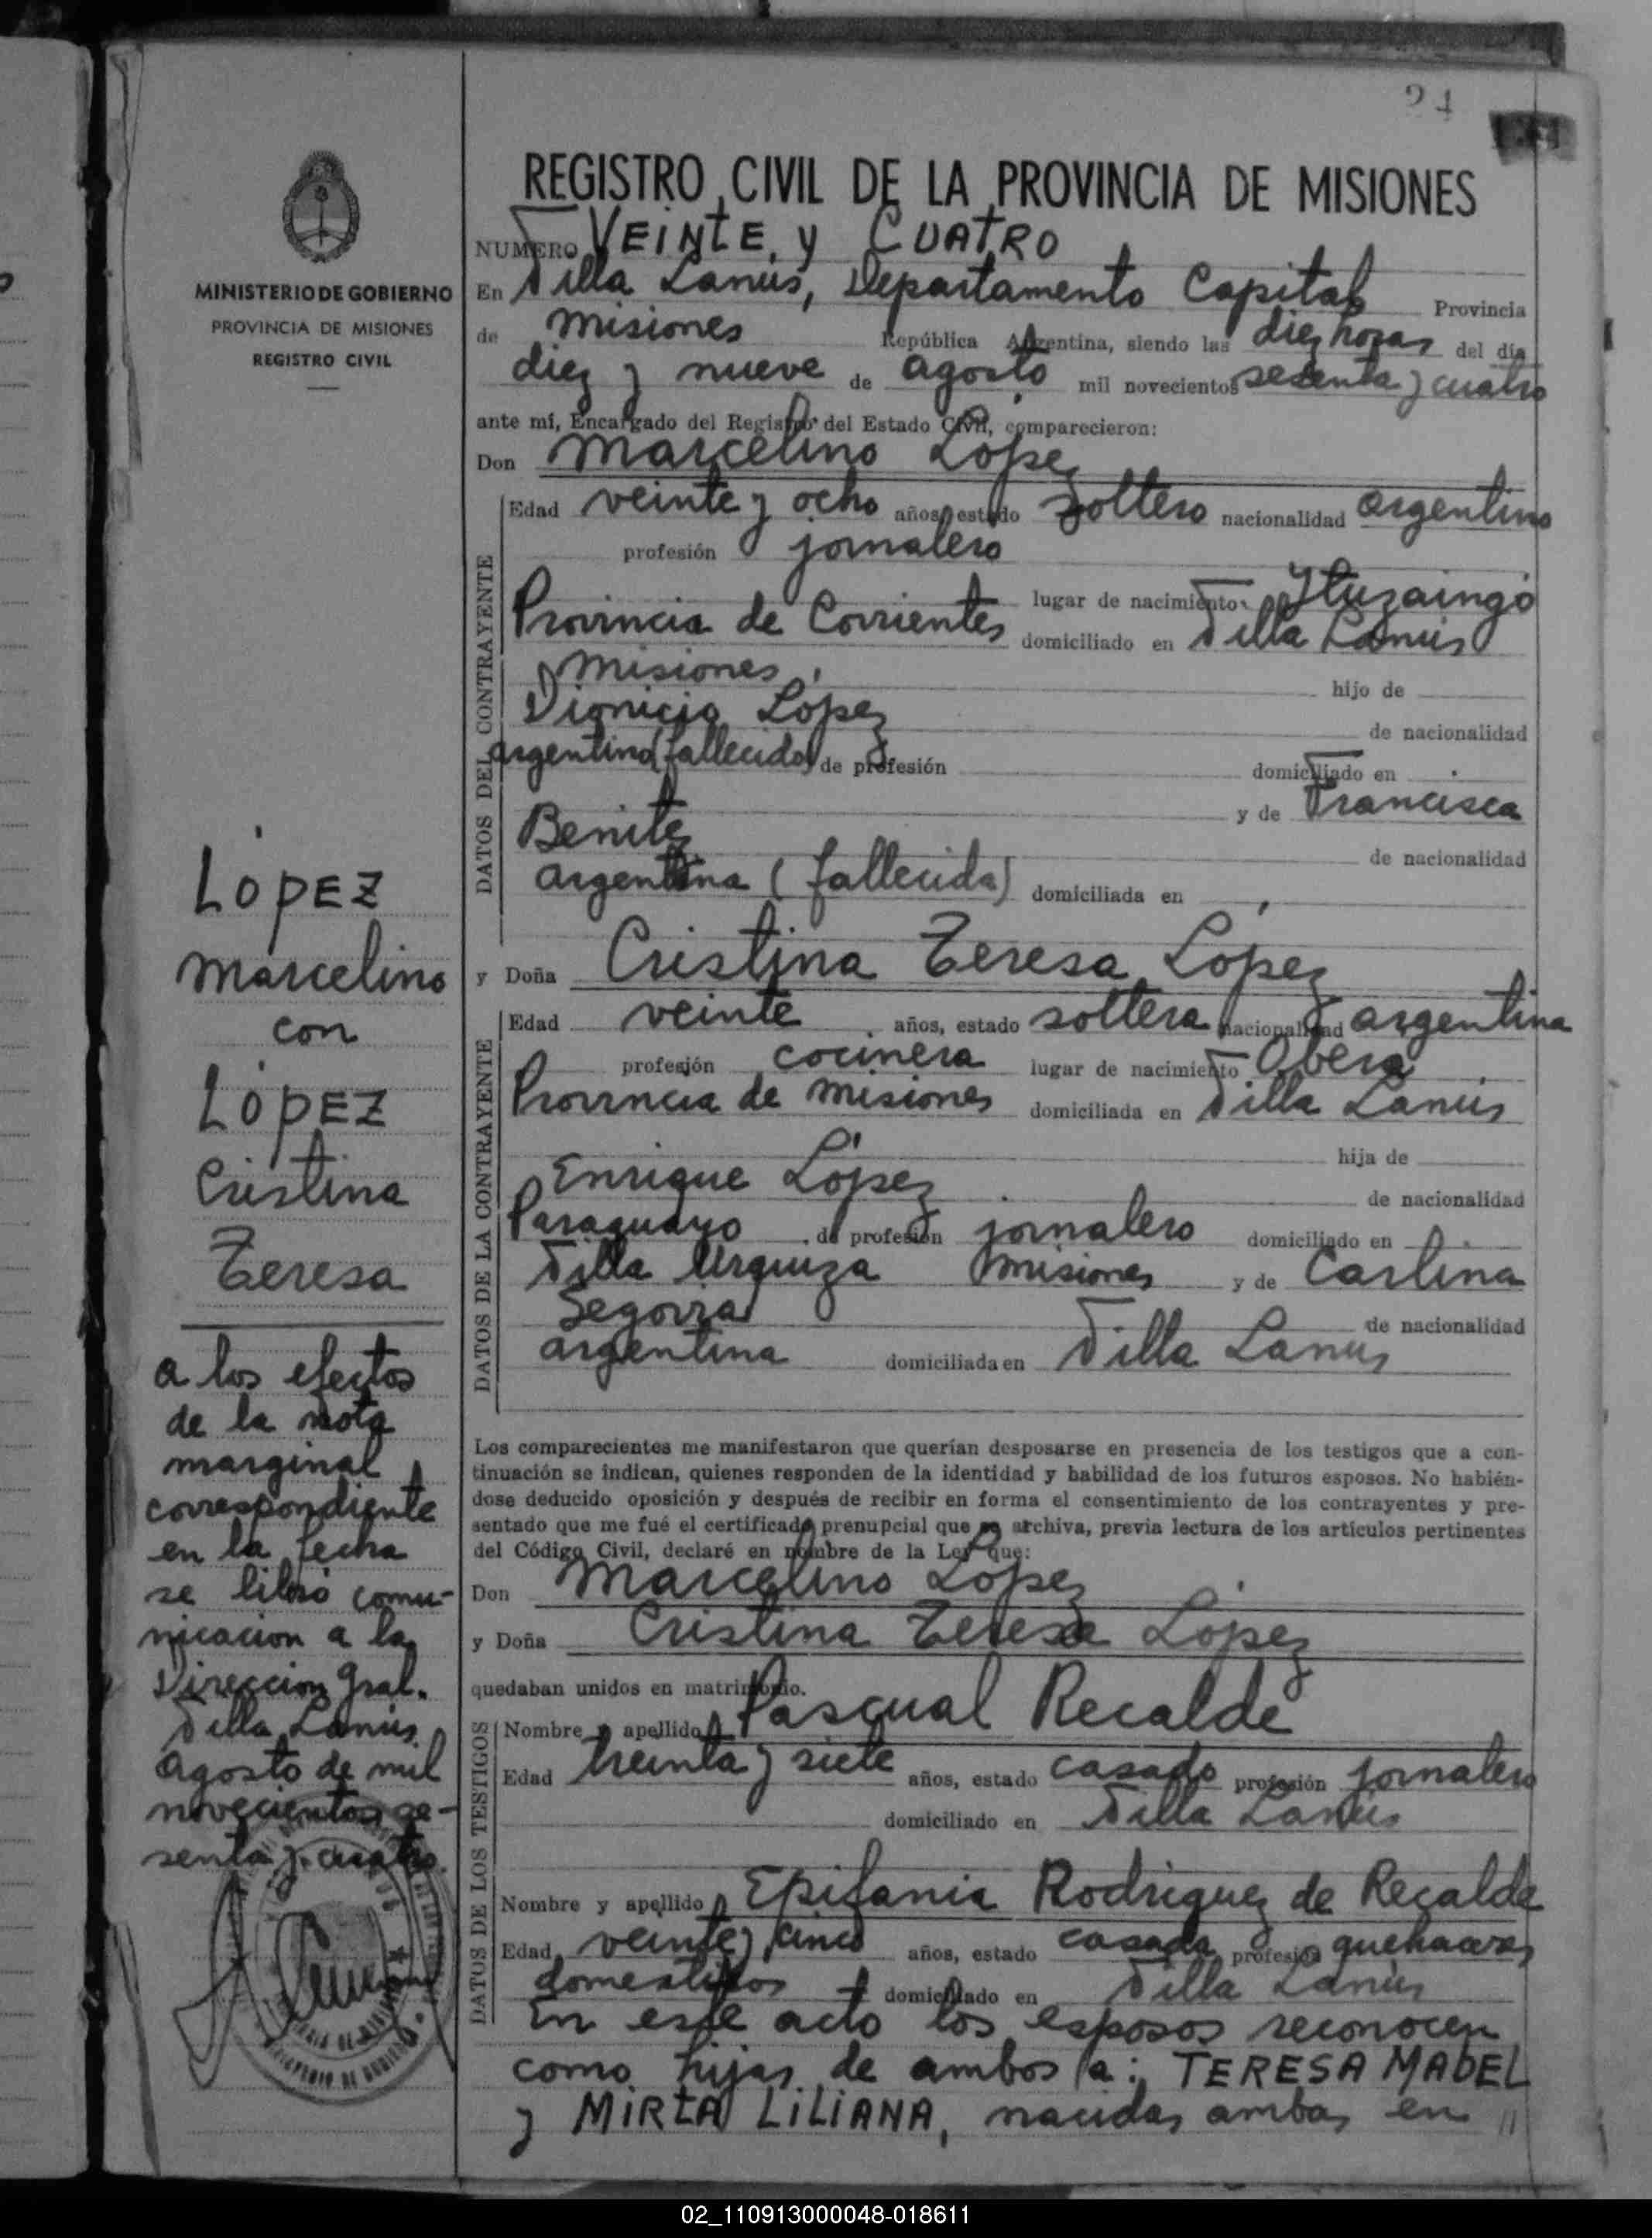 24
MINISTERIO DE GOBIERNO
PROVINCIA DE MISIONES
REGISTRO CIVIL
LOPEZ
Marcelino
con
LOPEZ
Cristina
Teresa
a los efectos
de la nota
marginal
correspondiente
en la fecha
se libró comu-
nicacion a la
Direccion Gral.
Villa Lanús,
Agosto de mil
novecientos se-
senta y cuatro.
REGISTRO CIVIL DE LA PROVINCIA DE MISIONES
NUMERO VEINTE Y CUATRO
En Villa Lanús, Departamento Capital Provincia
de Misiones República Argentina, siendo las diez horas del día
diez y nueve de Agosto mil novecientos sesenta y cuatro
ante mí, Encargado del Registro del Estado Civil, comparecieron:
Don Marcelino López
DATOS DEL CONTRAYENTE
Edad veinte y ocho años, estado soltero nacionalidad argentino
profesión jornalero
lugar de nacimiento Ituzaingó
Provincia de Corrientes domiciliado en Villa Lanús
Misiones, hijo de
Dionicio López
de nacionalidad
argentino (fallecido) de profesión domiciliado en
y de Francisca
Benitez
de nacionalidad
argentina (fallecida) domiciliada en
y Doña Cristina Teresa López
DATOS DE LA CONTRAYENTE
Edad veinte años, estado soltera nacionalidad argentina
profesión cocinera lugar de nacimiento Oberá
Provincia de Misiones domiciliada en Villa Lanús
hija de
Enrique López
de nacionalidad
Paraguayo de profesión jornalero domiciliado en
Villa Urquiza Misiones y de Carlina
Segovia
de nacionalidad
argentina domiciliada en Villa Lanus
Los comparecientes me manifestaron que querían desposarse en presencia de los testigos que a con-
tinuación se indican, quienes responden de la identidad y habilidad de los futuros esposos. No habién-
dose deducido oposición y después de recibir en forma el consentimiento de los contrayentes y pre-
sentado que me fué el certificado prenupcial que se archiva, previa lectura de los artículos pertinentes
del Código Civil, declaré en nombre de la Ley que:
Don Marcelino López
y Doña Cristina Teresa López
quedaban unidos en matrimonio.
DATOS DE LOS TESTIGOS
Nombre y apellido Pascual Recalde
Edad treinta y siete años, estado casado profesión jornalero
domiciliado en Villa Lanús
Nombre y apellido Epifania Rodriguez de Recalde
Edad veinte y cinco años, estado casada profesión quehaceres
domesticos domiciliado en Villa Lanús
En este acto los esposos reconocen
como hijas de ambos a: TERESA MABEL
y MIRTA LILIANA, nacidas ambas en //
02_110913000048-018611